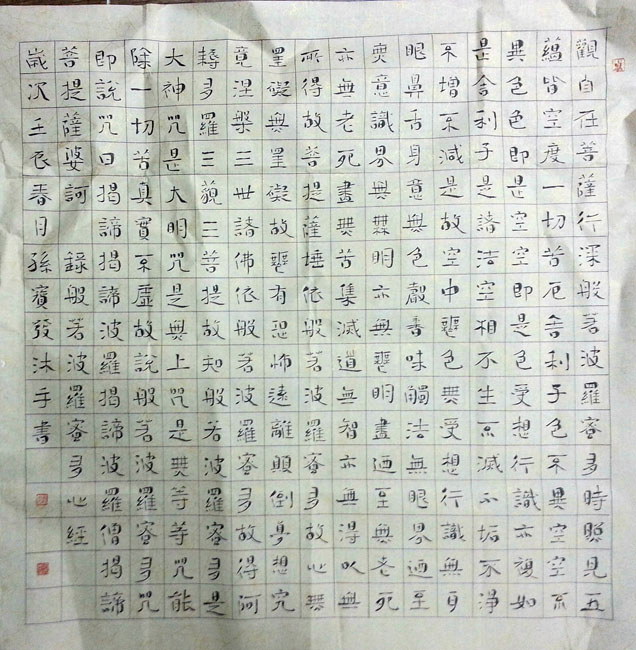 觀自在菩薩行深般若波羅蜜多時照見五
蘊皆空度一切苦厄舍利子色不異空空不
異色色即是空空即是色受想行識亦復如
是舍利子是諸法空相不生不滅不垢不淨
不增不減是故空中無色無受想行識無耳
眼鼻舌身意無色聲香味觸法無眼界迺至
無意識界無無明亦無無明盡迺至無老死
亦無老死盡無苦集滅道無智亦無得以無
所得故菩提薩埵依般若波羅蜜多故心無
罣礙無罣礙故無有恐怖遠離顛倒夢想究
竟涅槃三世諸佛依般若波羅蜜多故得阿
耨多羅三藐三菩提故知般若波羅蜜多是
大神咒是大明咒是無上咒是無等等咒能
除一切苦真實不虛故說般若波羅蜜多咒
即說咒曰揭諦揭諦波羅揭諦波羅僧揭諦
菩提薩婆訶 錄般若波羅蜜多心經
歲次壬辰春月孫賓發沐手書